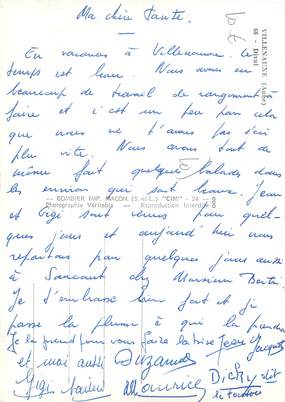 Ma chère Tante.
En vacances à Villenauxe. Le
temps est beau. Nous avons eu
beaucoup de travail de rangement à
faire et c'est un peu pour cela
que nous ne t'avons pas écrit
plus vite. Nous avons tout de
même fait quelques balades dans
les environs qui sont beaux. Jean
et Gigi sont venus pour quel-
ques jours et aujourd'hui nous
repartons pour quelques jours aussi
à chez Monsieur
Je t'embrasse bien fort et je
passe la plume à qui la prendra
Je la prends pour vous faire la bise Jean Jacques
et moi aussi Suzanne
Gigi Maurice Dicky dit
le toutou
VILLENAUXE (Aube)
88 - Dival
COMBIER IMP. MACON (S.-et-L.) "CIM"
Photographie Véritable - Reproduction Interdite